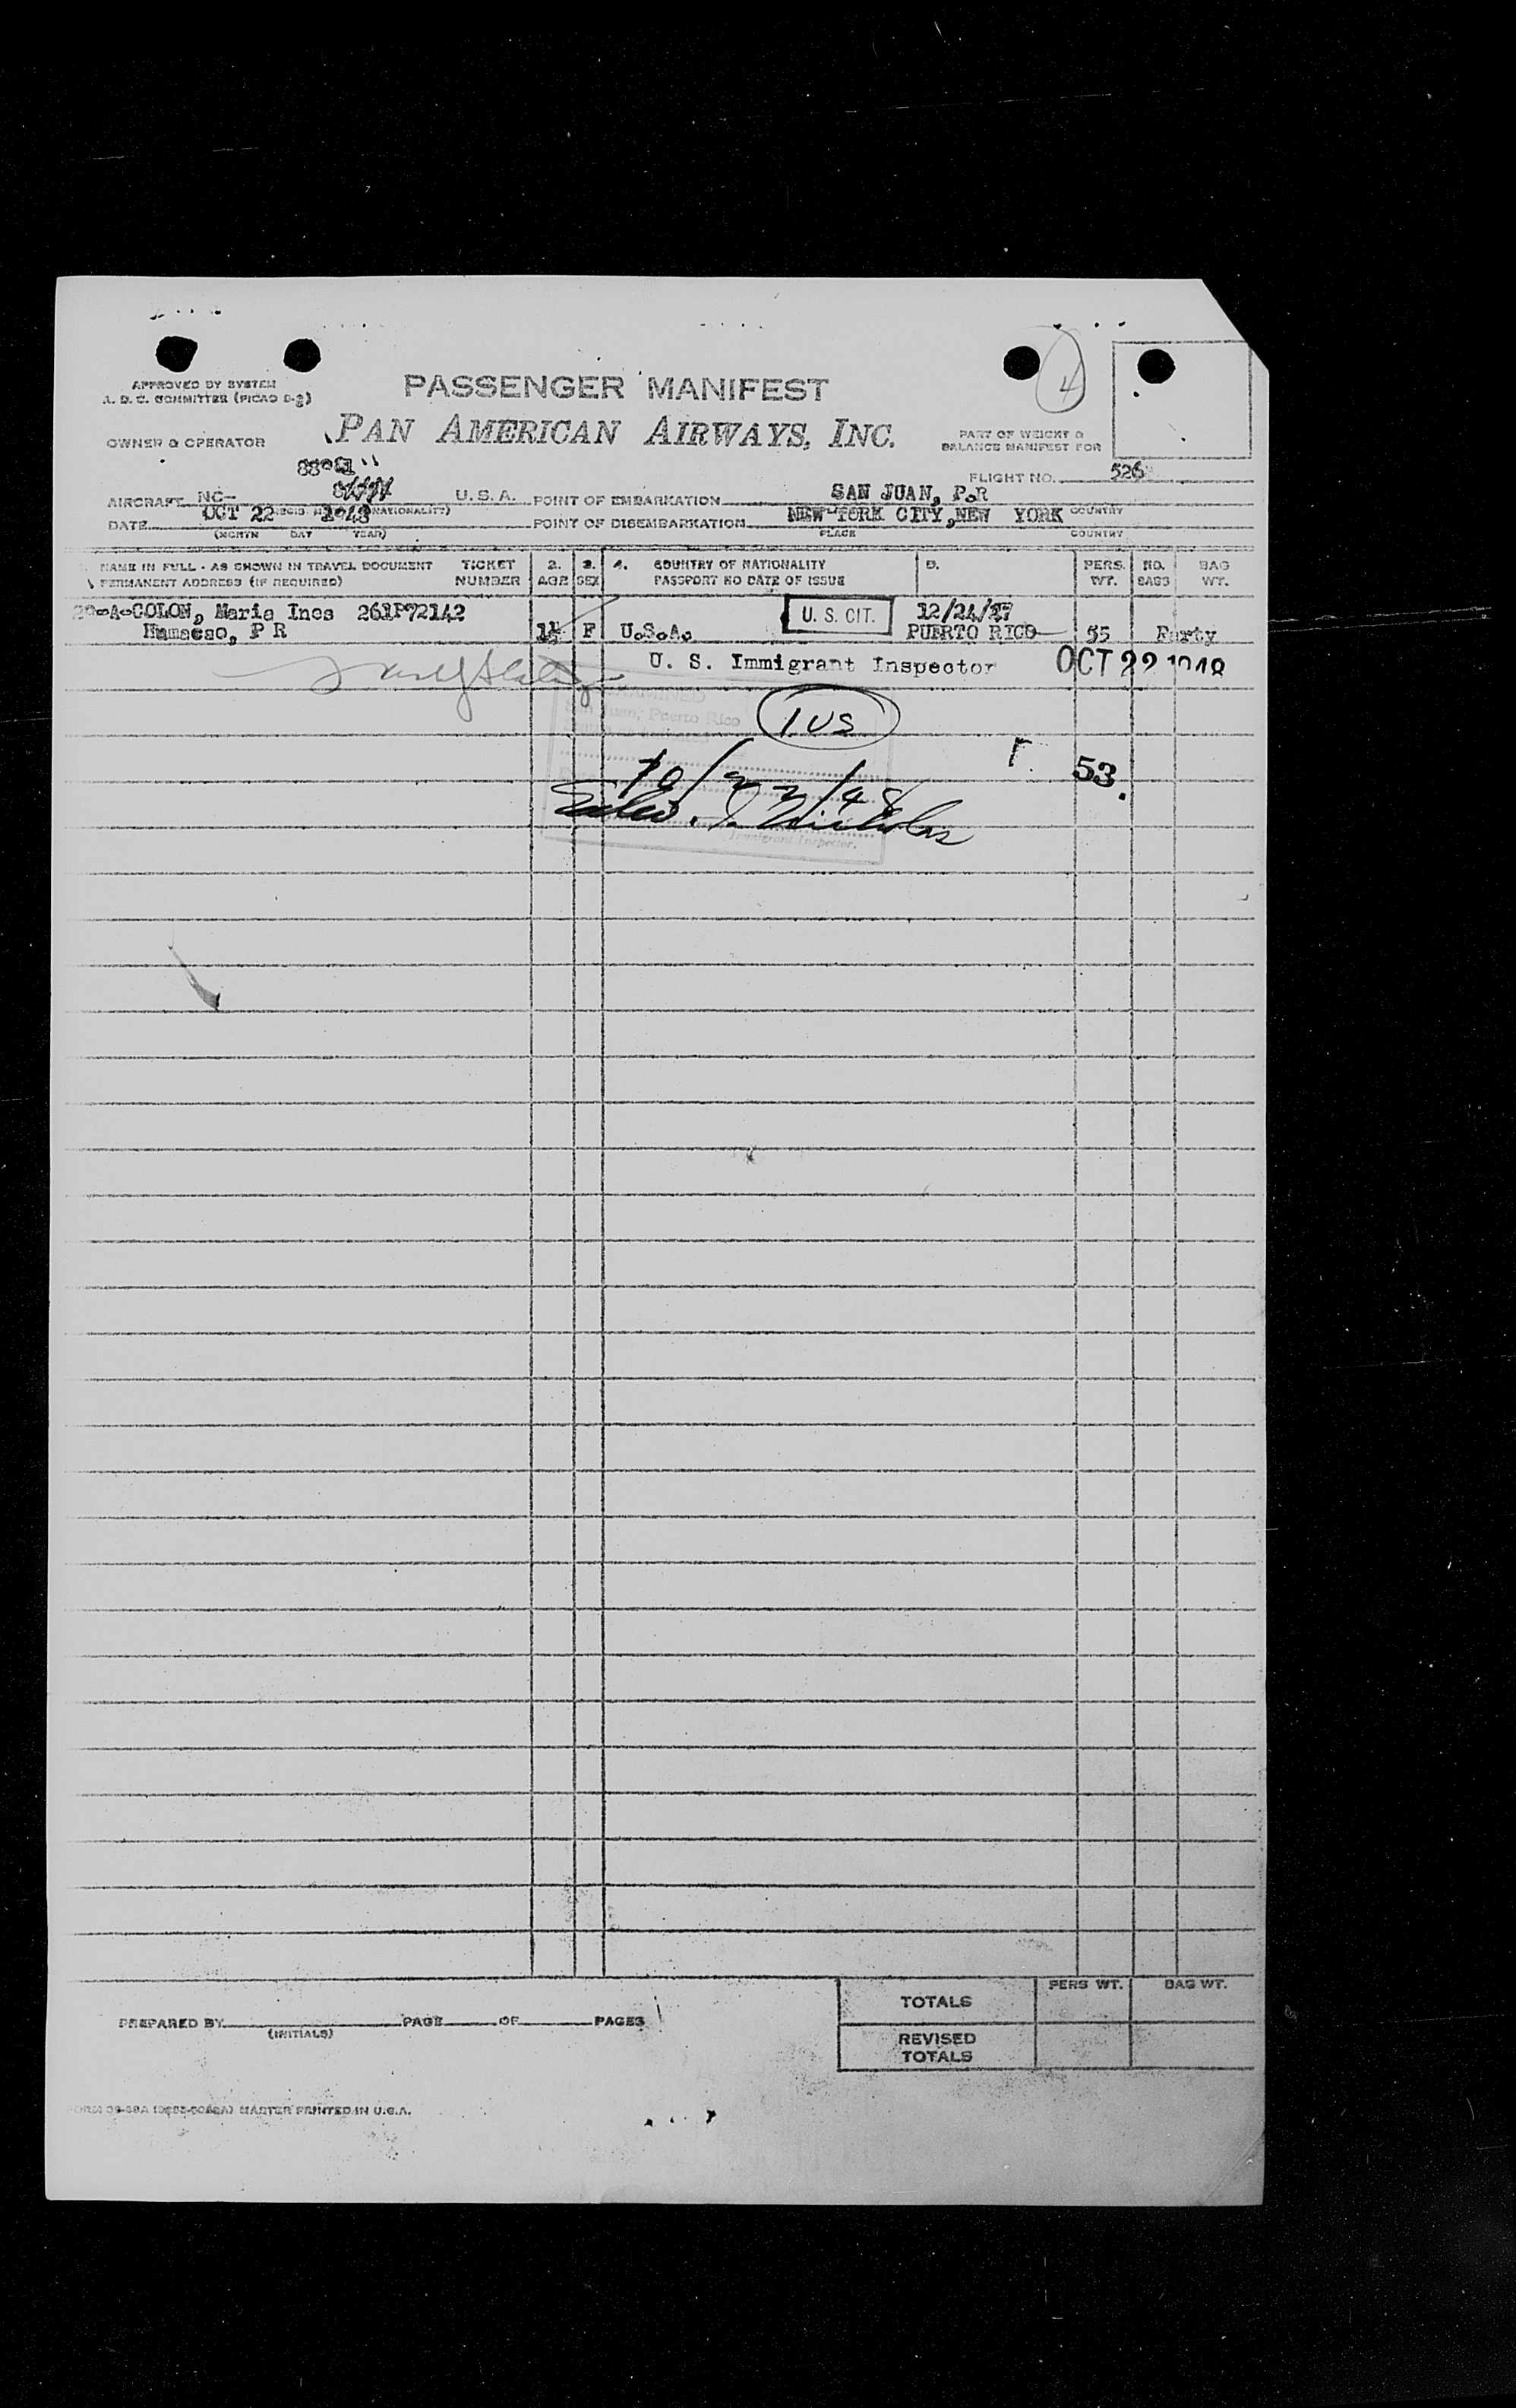 4
APPROVED BY SYSTEM
A. D. C. COMMITTEE (PICAO D-2)
PASSENGER MANIFEST
OWNER & OPERATOR
PAN AMERICAN AIRWAYS, INC.
PART OF WEIGHT &
BALANCE MANIFEST FOR
FLIGHT NO. 526
AIRCRAFT NC- U. S. A. POINT OF EMBARKATION SAN JUAN, P.R
DATE OCT 22 1948 POINT OF DISEMBARKATION NEW YORK CITY, NEW YORK COUNTRY
(MONTH DAY YEAR) PLACE COUNTRY
NAME IN FULL - AS SHOWN IN TRAVEL DOCUMENT TICKET 2. 3. 4. COUNTRY OF NATIONALITY 5. PERS. NO. BAG
PERMANENT ADDRESS (IF REQUIRED) NUMBER AGE SEX PASSPORT NO DATE OF ISSUE WT. BAGS WT.
COLON, Maria Ines 261P72142 U. S. CIT.
Humacao, P R F U.S.A. PUERTO RICO 55 Party
U. S. Immigrant Inspector OCT 22 1948
EXAMINED
San Juan, Puerto Rico
1 US
53.
10/22/48
Nicholas
Immigrant Inspector.
TOTALS PERS WT. BAG WT.
PREPARED BY PAGE OF PAGES
(INITIALS)
REVISED
TOTALS
MASTER PRINTED IN U.S.A.